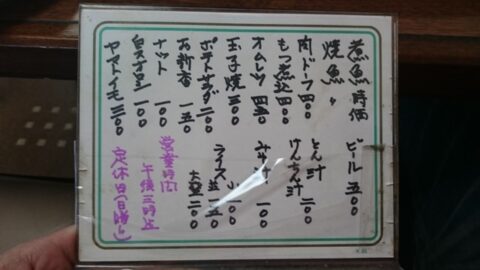 煮魚 時価
焼魚 〃
肉ドーフ 四〇〇
もつ煮込 四〇〇
オムレツ 四五〇
玉子焼 三〇〇
ポテトサラダ 二〇〇
お新香 一五〇
ナット 一〇〇
白スオロシ 一〇〇
ヤマトイモ 三〇〇
ビール 五〇〇
とん汁
けんちん汁 二〇〇
みそ汁 一〇〇
ライス 小 一〇〇
並 一五〇
大盛 二〇〇
営業時間
午後三時より
定休日(日、